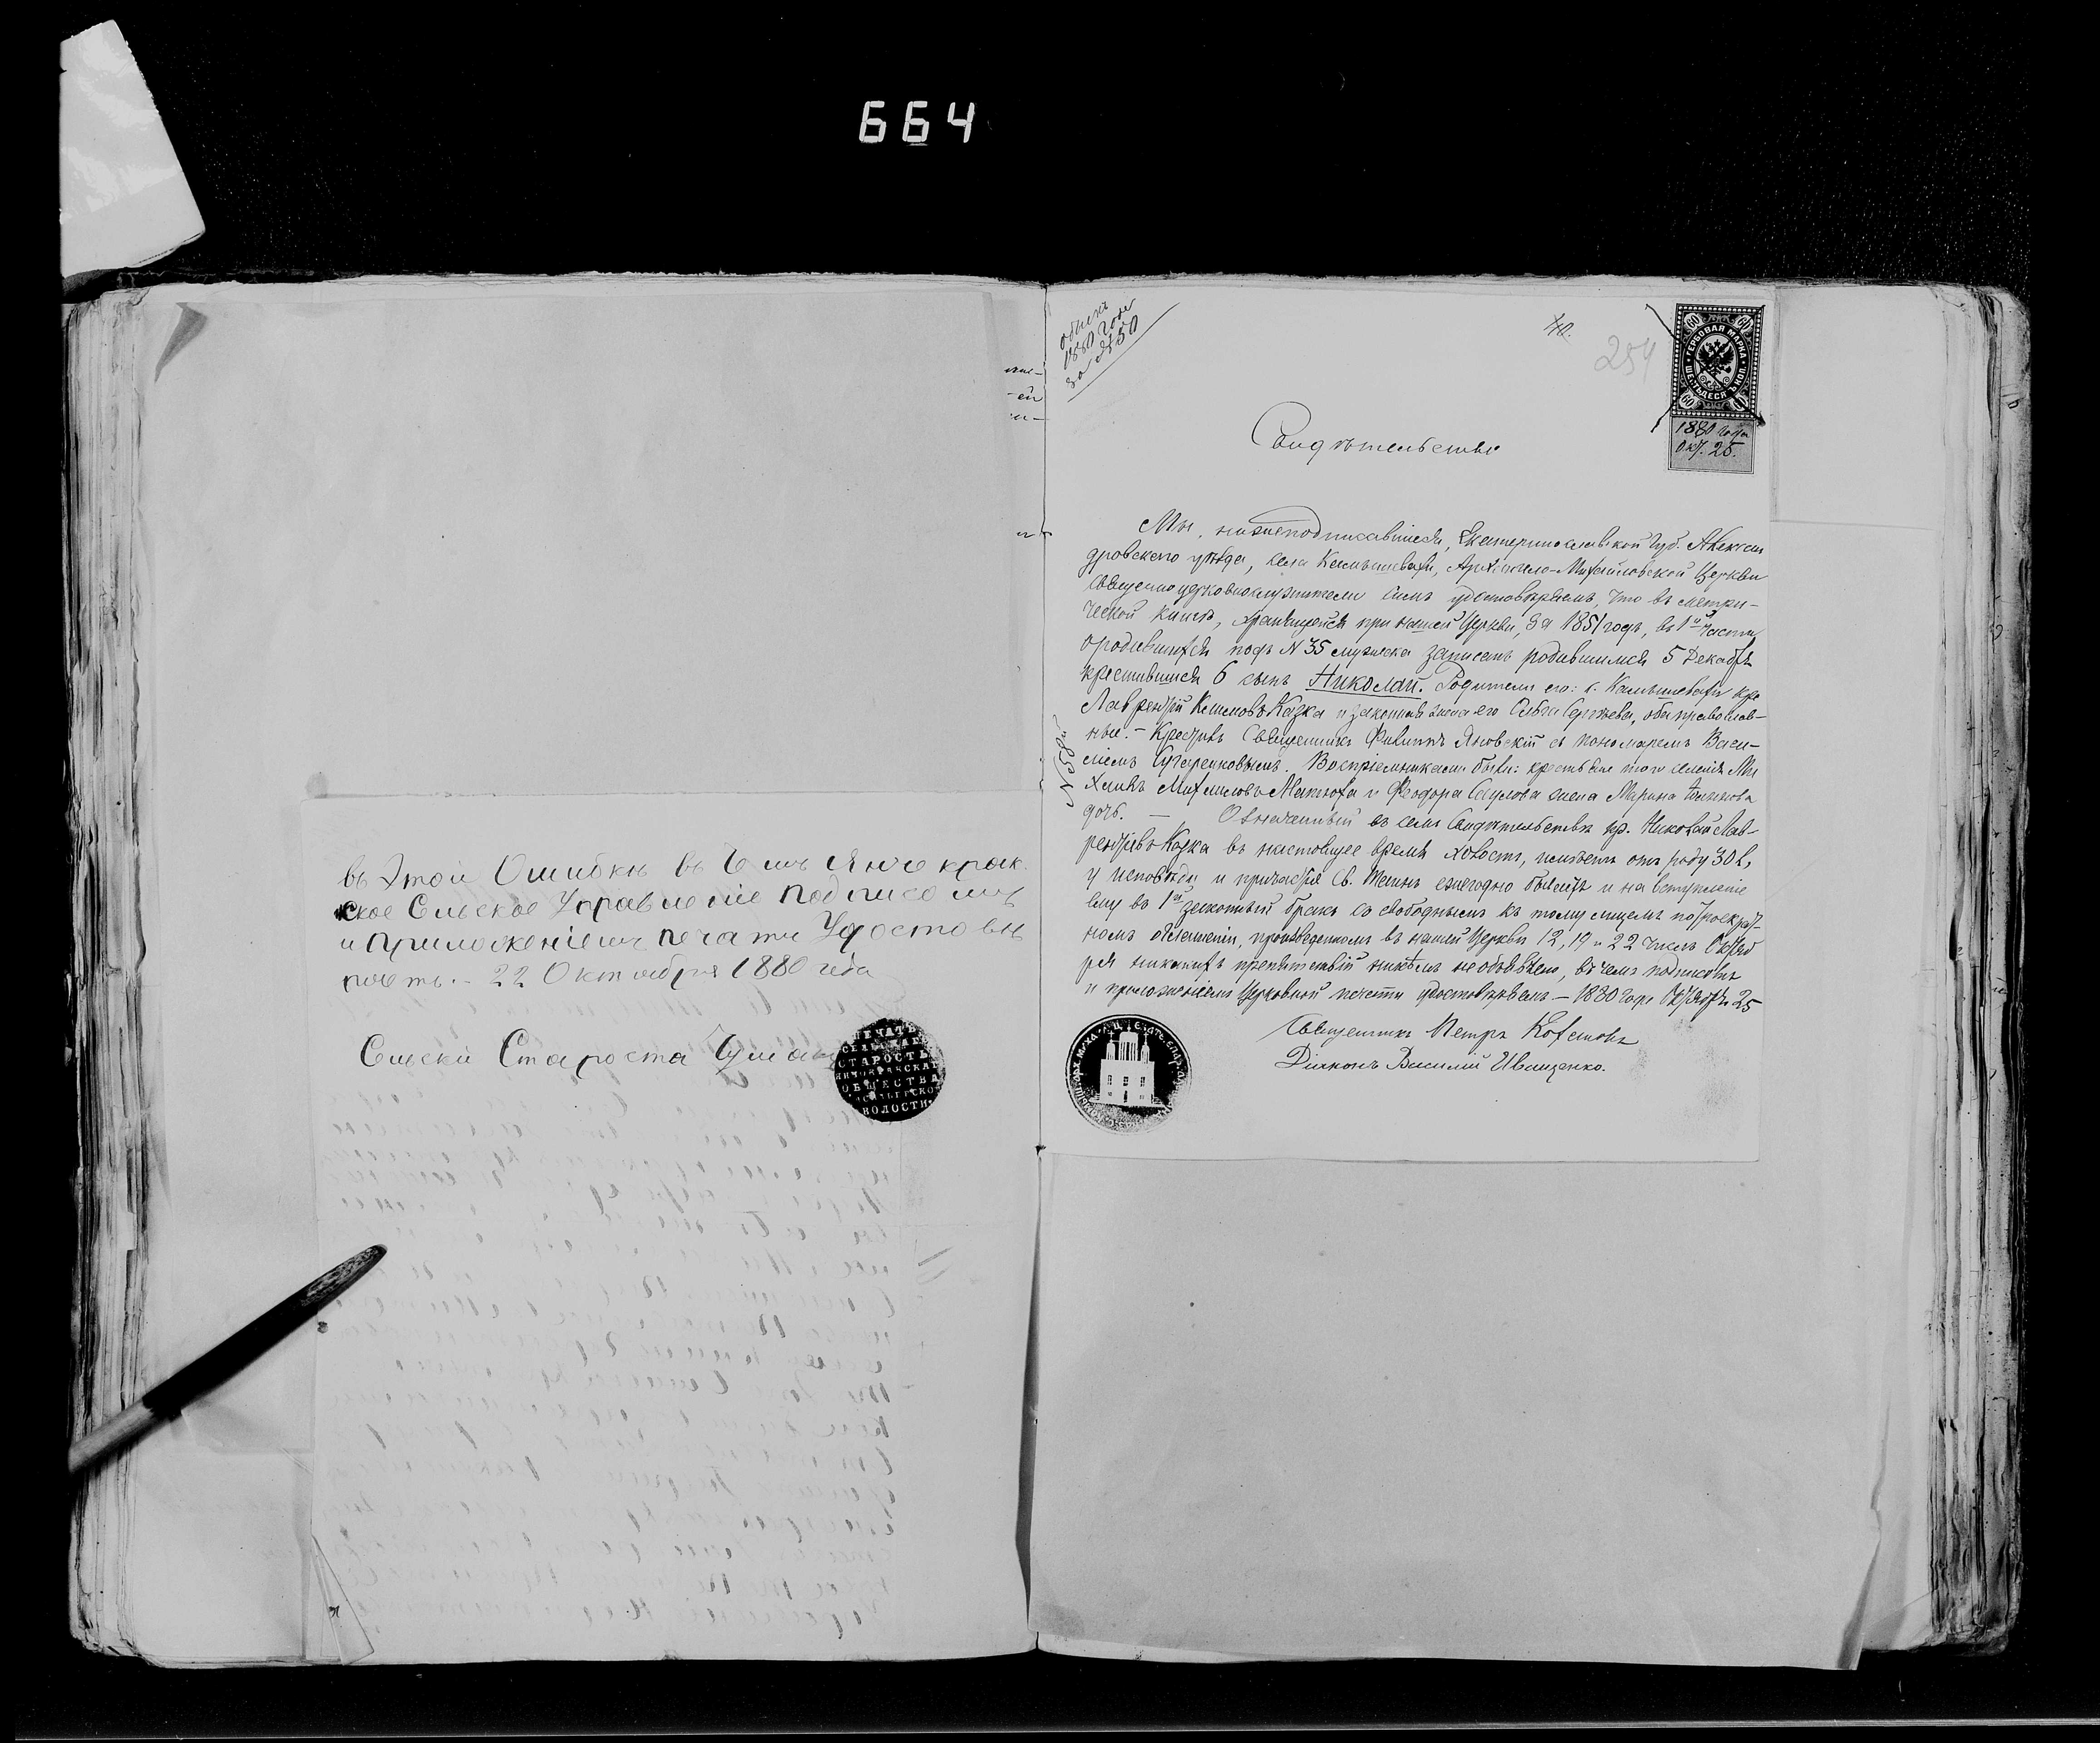 664
въ этой Ошибки въ Чемъ Янчекрак
ское Сельское Управление подписомъ
и приложениемъ печати Удостовѣ
ряетъ. 22 Октября 1880 года
Сельски Староста
ПЕЧАТЬ
СЕЛЬСКАГО
СТАРОСТЫ
ЯНЧОКРАКСКАГО
ОБЩЕСТВА
ВОЛОСТИ
1880 года
за №50
254
ГЕРБОВАЯ МАРКА
ШЕСТЬДЕСЯТЪ КОП.
60 60
60 60
1880 года
Окт. 25.
Свидѣтельство
Мы, нижеподписавшіеся, Екатеринославской губ. Алексан
дровскаго уѣзда, села Камышевахи, Архангело-Михайловской Церкви
Священноцерковнослужители симъ удостовѣряемъ, что въ метри-
ческой книгѣ, хранящейся при нашей Церкви, за 1851 годъ, въ 1й части
о родившихся подъ №35 мужеска записанъ родившимся 5 Декабря
крестившимся 6 сынъ Николай. Родители его: с. Камышевахи кре
Лаврентій Климовъ Казка и законная жена его Ольга Сергѣева, оба православ-
ные. - Крестилъ Священникъ Филиппъ Яновскій съ пономаремъ Васи-
ліемъ. Воспріемниками были: крестьяне того селенія Ми
хаилъ Михайловъ и Феодора жена Марина
дочь. — Означенный въ семъ Свидѣтельствѣ кр. Николай Лав-
рентіевъ Казка въ настоящее время холостъ, имѣетъ отъ роду 30 л,
у исповѣди и причастія Св. Таинъ ежегодно бываетъ и на вступленіе
ему въ 1й законный бракъ со свободнымъ къ тому лицемъ по троекрат-
номъ оглашеніи, произведенномъ въ нашей Церкви 12, 19 и 22 числъ Октяб
ря никакихъ препятствій никѣмъ не объявлено, въ чемъ подписомъ
и приложеніемъ Церковной печати удостовѣряемъ — 1880 года Октября 25
Священникъ Петръ
Діаконъ Василій Иващенко.